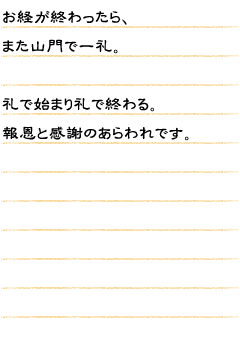 お経が終わったら、
また山門で一礼。
礼で始まり礼で終わる。
報恩と感謝のあらわれです。